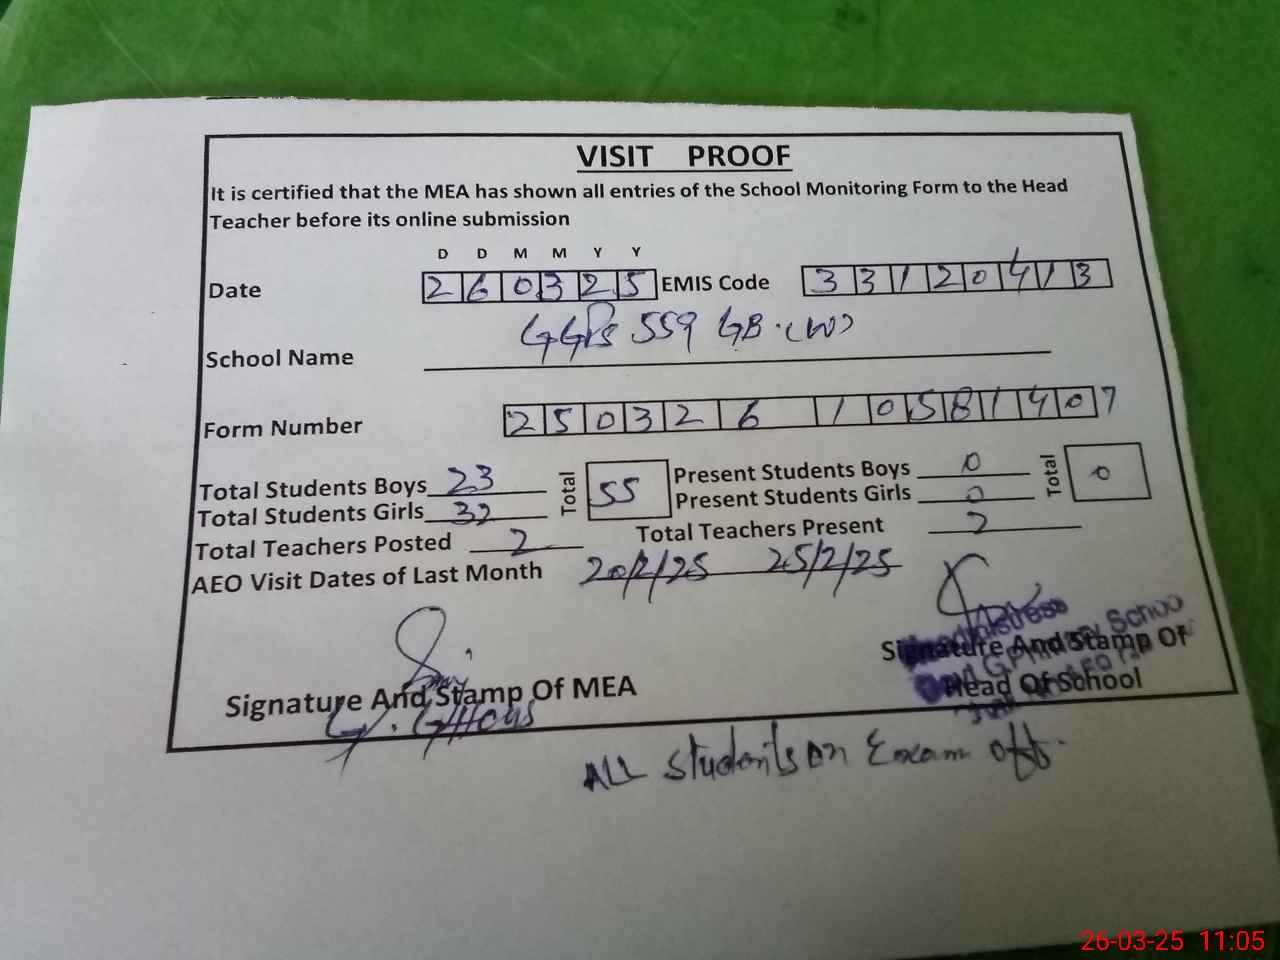 VISIT PROOF
It is certified that the MEA has shown all entries of the School Monitoring Form to the Head
Teacher before its online submission
D D M M Y Y
Date 260325 EMIS Code 33120413
School Name GGPS 559 GB (W)
Form Number 250326 10581407
Total Students Boys 23 Total 55 Present Students Boys 0 Total 0
Total Students Girls 32 Present Students Girls 0
Total Teachers Posted 2 Total Teachers Present 2
AEO Visit Dates of Last Month 20/2/25 25/2/25
Signature And Stamp Of MEA
Signature And Stamp Of
Head Of School
ALL Students on Exam off.
26-03-25 11:05